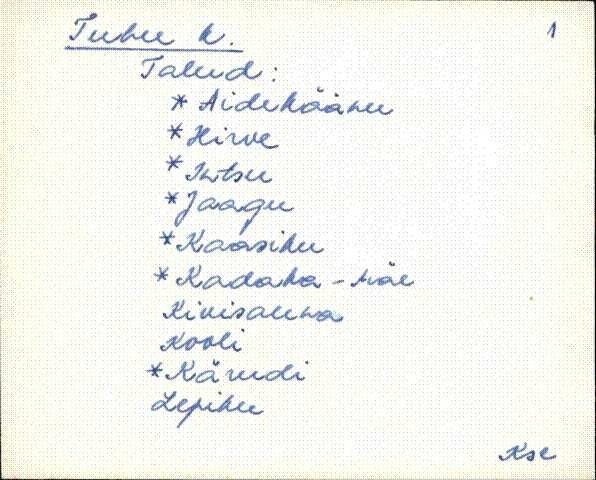 Tuhu k. 1
Talud:
* Aidekäänu
* Hirve
* Intsu
* Jaagu
* Kaasiku
* Kadaka-mäe
Kivisauna
Kooli
* Kärudi
Lepiku
Kse